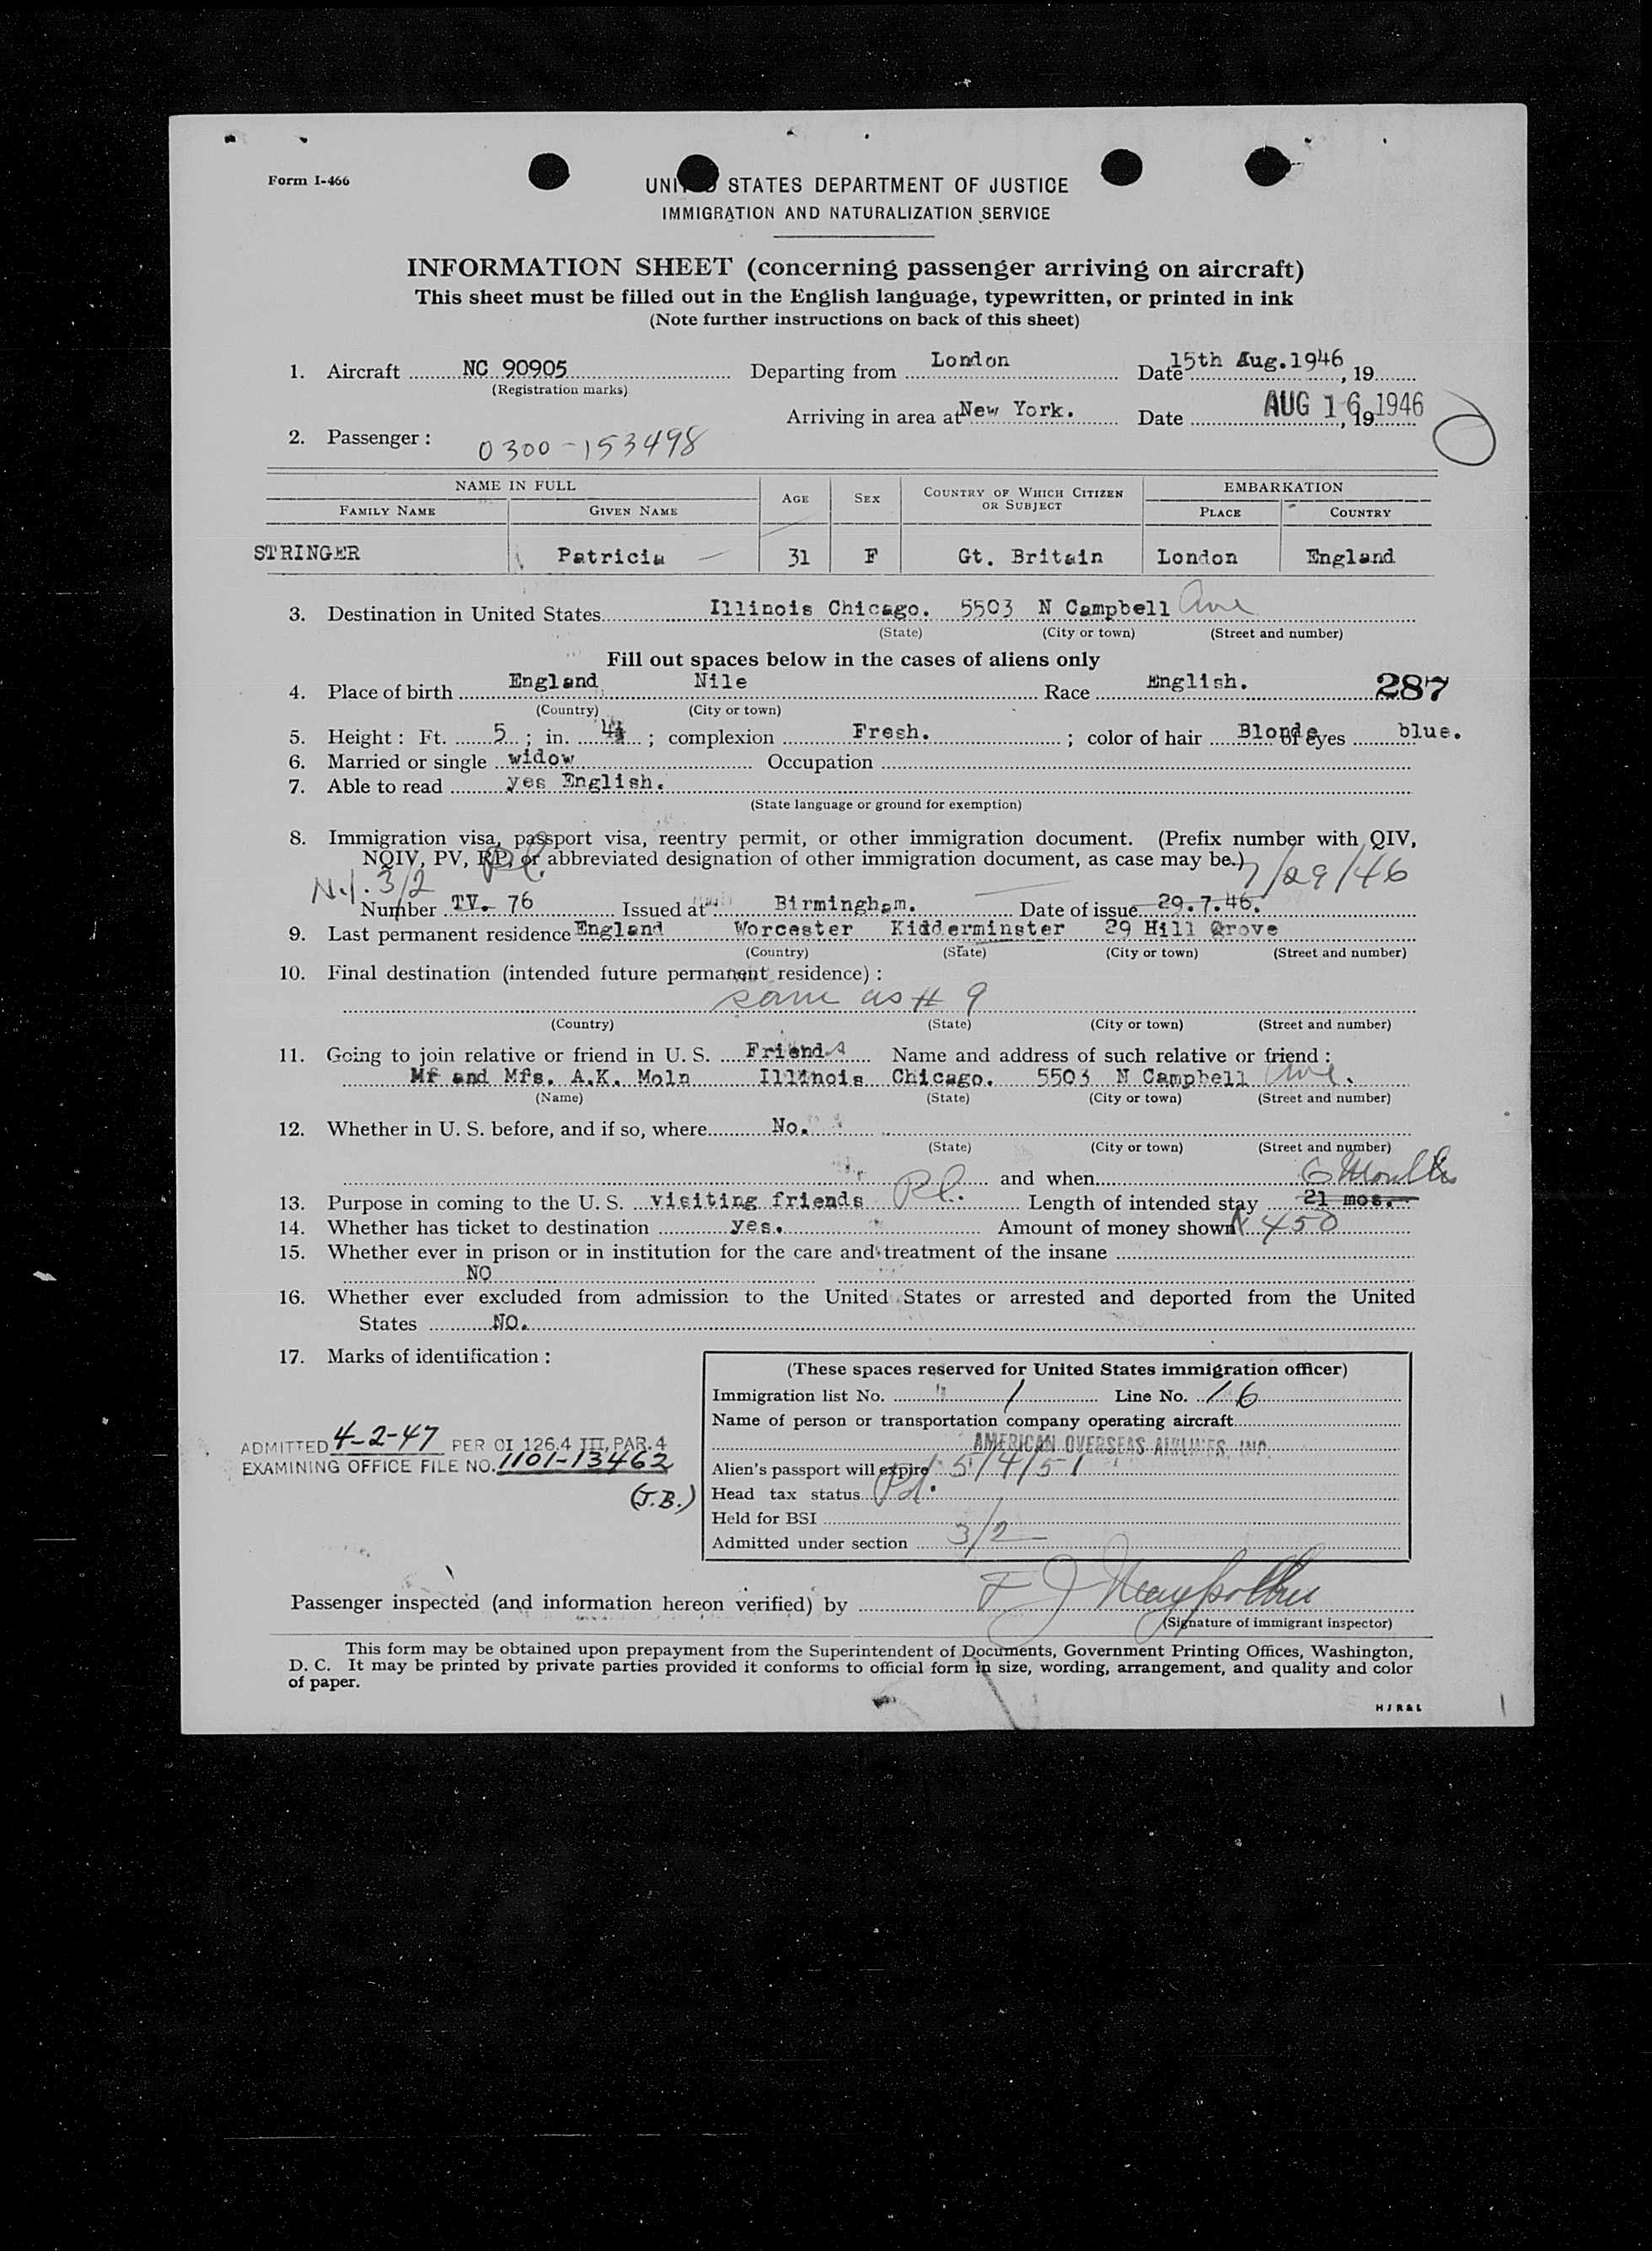 Form I-466
UNITED STATES DEPARTMENT OF JUSTICE
IMMIGRATION AND NATURALIZATION SERVICE
INFORMATION SHEET (concerning passenger arriving on aircraft)
This sheet must be filled out in the English language, typewritten, or printed in ink
(Note further instructions on back of this sheet)
1. Aircraft NC 90905 Departing from London Date 15th Aug.1946, 19
(Registration marks)
Arriving in area at New York. Date AUG 16 1946, 19
2. Passenger: 0300-153498
NAME IN FULL AGE SEX COUNTRY OF WHICH CITIZEN OR SUBJECT EMBARKATION
FAMILY NAME GIVEN NAME PLACE COUNTRY
STRINGER Patricia 31 F Gt. Britain London England
3. Destination in United States Illinois Chicago. 5503 N Campbell Ave
(State) (City or town) (Street and number)
Fill out spaces below in the cases of aliens only
4. Place of birth England Nile Race English. 287
(Country) (City or town)
5. Height: Ft. 5; in. 4½; complexion Fresh.; color of hair Blonde of eyes blue.
6. Married or single widow Occupation
7. Able to read yes English.
(State language or ground for exemption)
8. Immigration visa, passport visa, reentry permit, or other immigration document. (Prefix number with QIV,
NQIV, PV, RP, or abbreviated designation of other immigration document, as case may be.)
3/2 7/29/46
Number TV. 76 Issued at Birmingham. Date of issue 29.7.46.
9. Last permanent residence England Worcester Kidderminster 29 Hill Grove
(Country) (State) (City or town) (Street and number)
10. Final destination (intended future permanent residence):
same as # 9
(Country) (State) (City or town) (Street and number)
11. Going to join relative or friend in U. S. Friends Name and address of such relative or friend:
Mr and Mrs. A.K. Moln Illinois Chicago. 5503 N Campbell Ave.
(Name) (State) (City or town) (Street and number)
12. Whether in U. S. before, and if so, where No.
(State) (City or town) (Street and number)
and when 6 Months
13. Purpose in coming to the U. S. visiting friends Pl. Length of intended stay 21 mos.
14. Whether has ticket to destination yes. Amount of money shown 450
15. Whether ever in prison or in institution for the care and treatment of the insane
NO
16. Whether ever excluded from admission to the United States or arrested and deported from the United
States NO.
17. Marks of identification:
(These spaces reserved for United States immigration officer)
Immigration list No. 1 Line No. 16
Name of person or transportation company operating aircraft
AMERICAN OVERSEAS AIRLINES, INC.
ADMITTED 4-2-47 PER OI 126.4 III, PAR.4
EXAMINING OFFICE FILE NO. 1101-13462
(J.B.)
Alien's passport will expire 5/4/51
Head tax status Pd.
Held for BSI
Admitted under section 3/2
Passenger inspected (and information hereon verified) by F J
(Signature of immigrant inspector)
This form may be obtained upon prepayment from the Superintendent of Documents, Government Printing Offices, Washington,
D. C. It may be printed by private parties provided it conforms to official form in size, wording, arrangement, and quality and color
of paper.
H J R & L